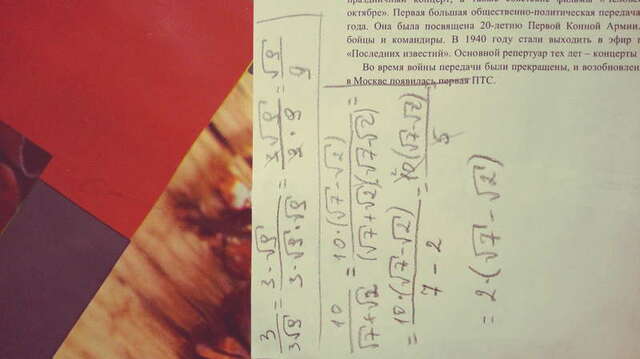 3/(3√9) = (3·√9)/(3·√9·√9) = (3√9)/(3·9) = √9/9
10/(√7+√2) = (10·(√7-√2))/((√7+√2)(√7-√2)) =
= (10·(√7-√2))/(7-2) = (10(√7-√2))/5
= 2·(√7-√2)
октябре». Первая большая общественно-политическая передача
года. Она была посвящена 20-летию Первой Конной Армии,
бойцы и командиры. В 1940 году стали выходить в эфир
«Последних известий». Основной репертуар тех лет – концерты
Во время войны передачи были прекращены, и возобновлен
в Москве появилась первая ПТС.